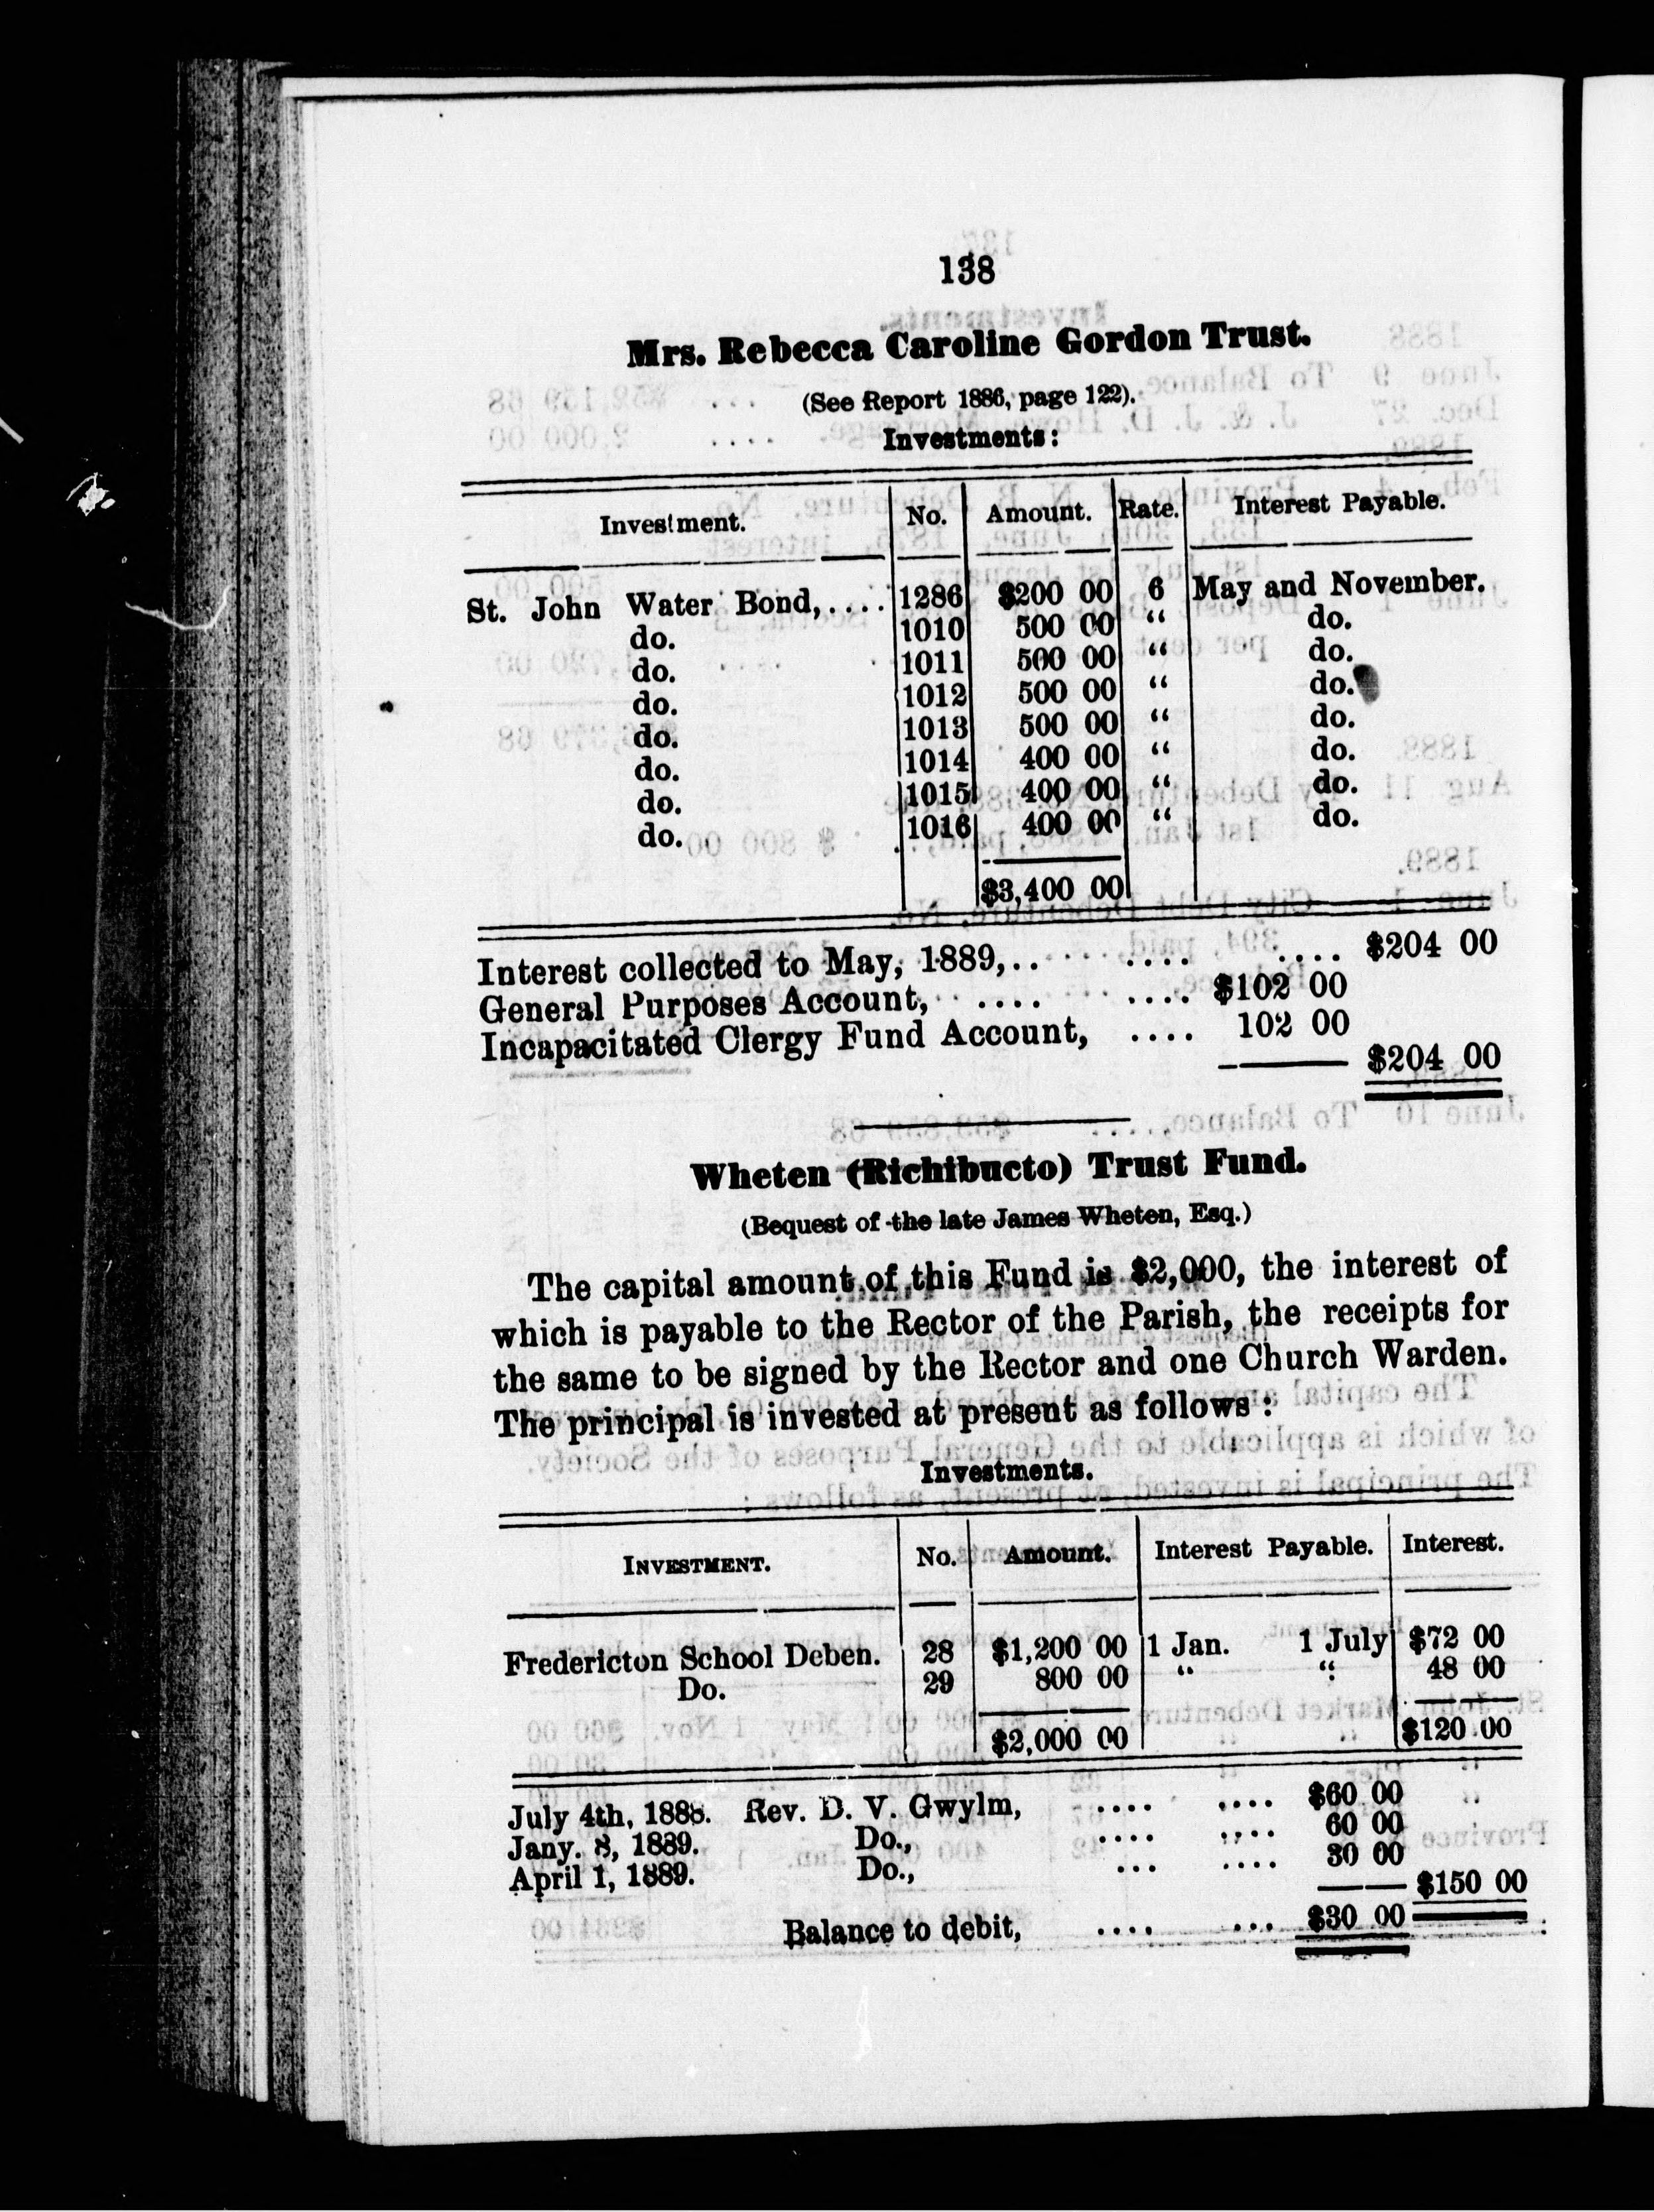 138
Mrs. Rebecca Caroline Gordon Trust.
(See Report 1886, page 122).
Investments:
Investment. No. Amount. Rate. Interest Payable.
St. John Water Bond,.... 1286 $200 00 6 May and November.
do. 1010 500 00 “ do.
do. 1011 500 00 “ do.
do. 1012 500 00 “ do.
do. 1013 500 00 “ do.
do. 1014 400 00 “ do.
do. 1015 400 00 “ do.
do. 1016 400 00 “ do.
$3,400 00
Interest collected to May, 1889,.. .... .... $204 00
General Purposes Account, .... .... $102 00
Incapacitated Clergy Fund Account, .... 102 00
$204 00
Wheten (Richibucto) Trust Fund.
(Bequest of the late James Wheten, Esq.)
The capital amount of this Fund is $2,000, the interest of
which is payable to the Rector of the Parish, the receipts for
the same to be signed by the Rector and one Church Warden.
The principal is invested at present as follows :
Investments.
INVESTMENT. No. Amount. Interest Payable. Interest.
Fredericton School Deben. 28 $1,200 00 1 Jan. 1 July $72 00
Do. 29 800 00 “ “ 48 00
$2,000 00 $120 00
July 4th, 1888. Rev. D. V. Gwylm, .... .... $60 00
Jany. 8, 1889. Do., .... .... 60 00
April 1, 1889. Do., ... .... 30 00
$150 00
Balance to debit, .... ... $30 00